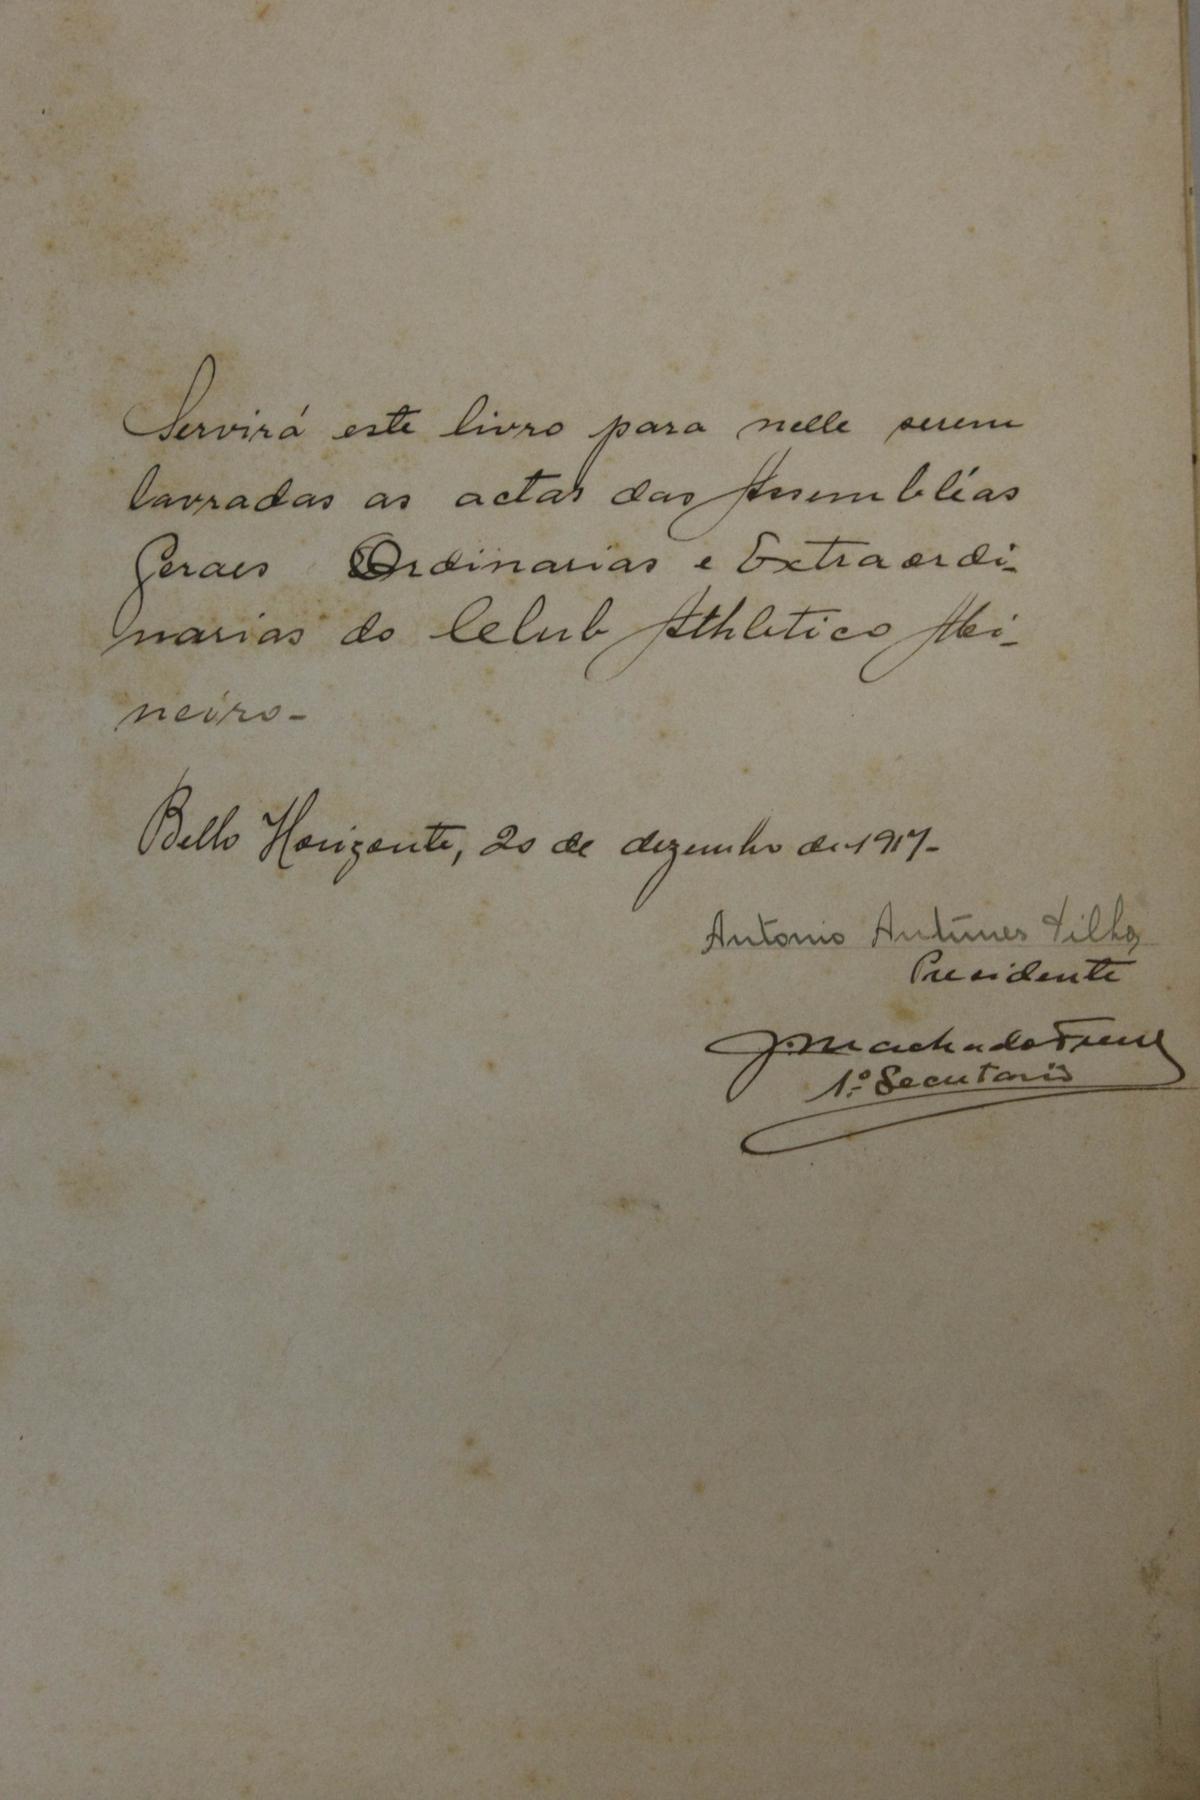 Servirá este livro para nelle serem
lavradas as actas das Assembléas
Geraes Ordinarias e Extraordi-
narias do Club Athletico Mi-
neiro-
Bello Horizonte, 20 de dezembro de 1917-
Antonio Antunes Filho,
Presidente
J. Machado
1.º Secretario